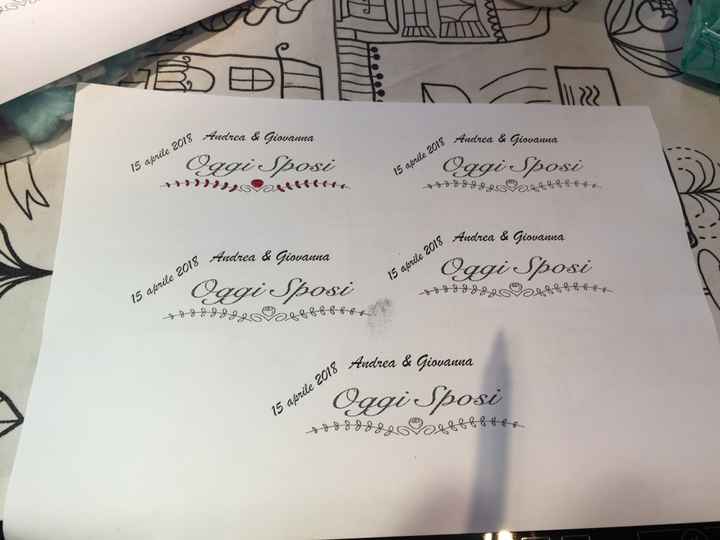 15 aprile 2018
Andrea & Giovanna
Oggi Sposi
15 aprile 2018
Andrea & Giovanna
Oggi Sposi
15 aprile 2018
Andrea & Giovanna
Oggi Sposi
15 aprile 2018
Andrea & Giovanna
Oggi Sposi
15 aprile 2018
Andrea & Giovanna
Oggi Sposi